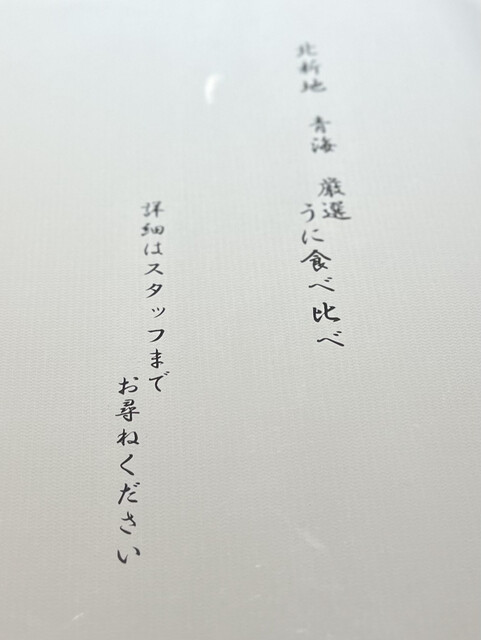 北新地 青海 厳選
うに食べ比べ
詳細はスタッフまで
お尋ねください